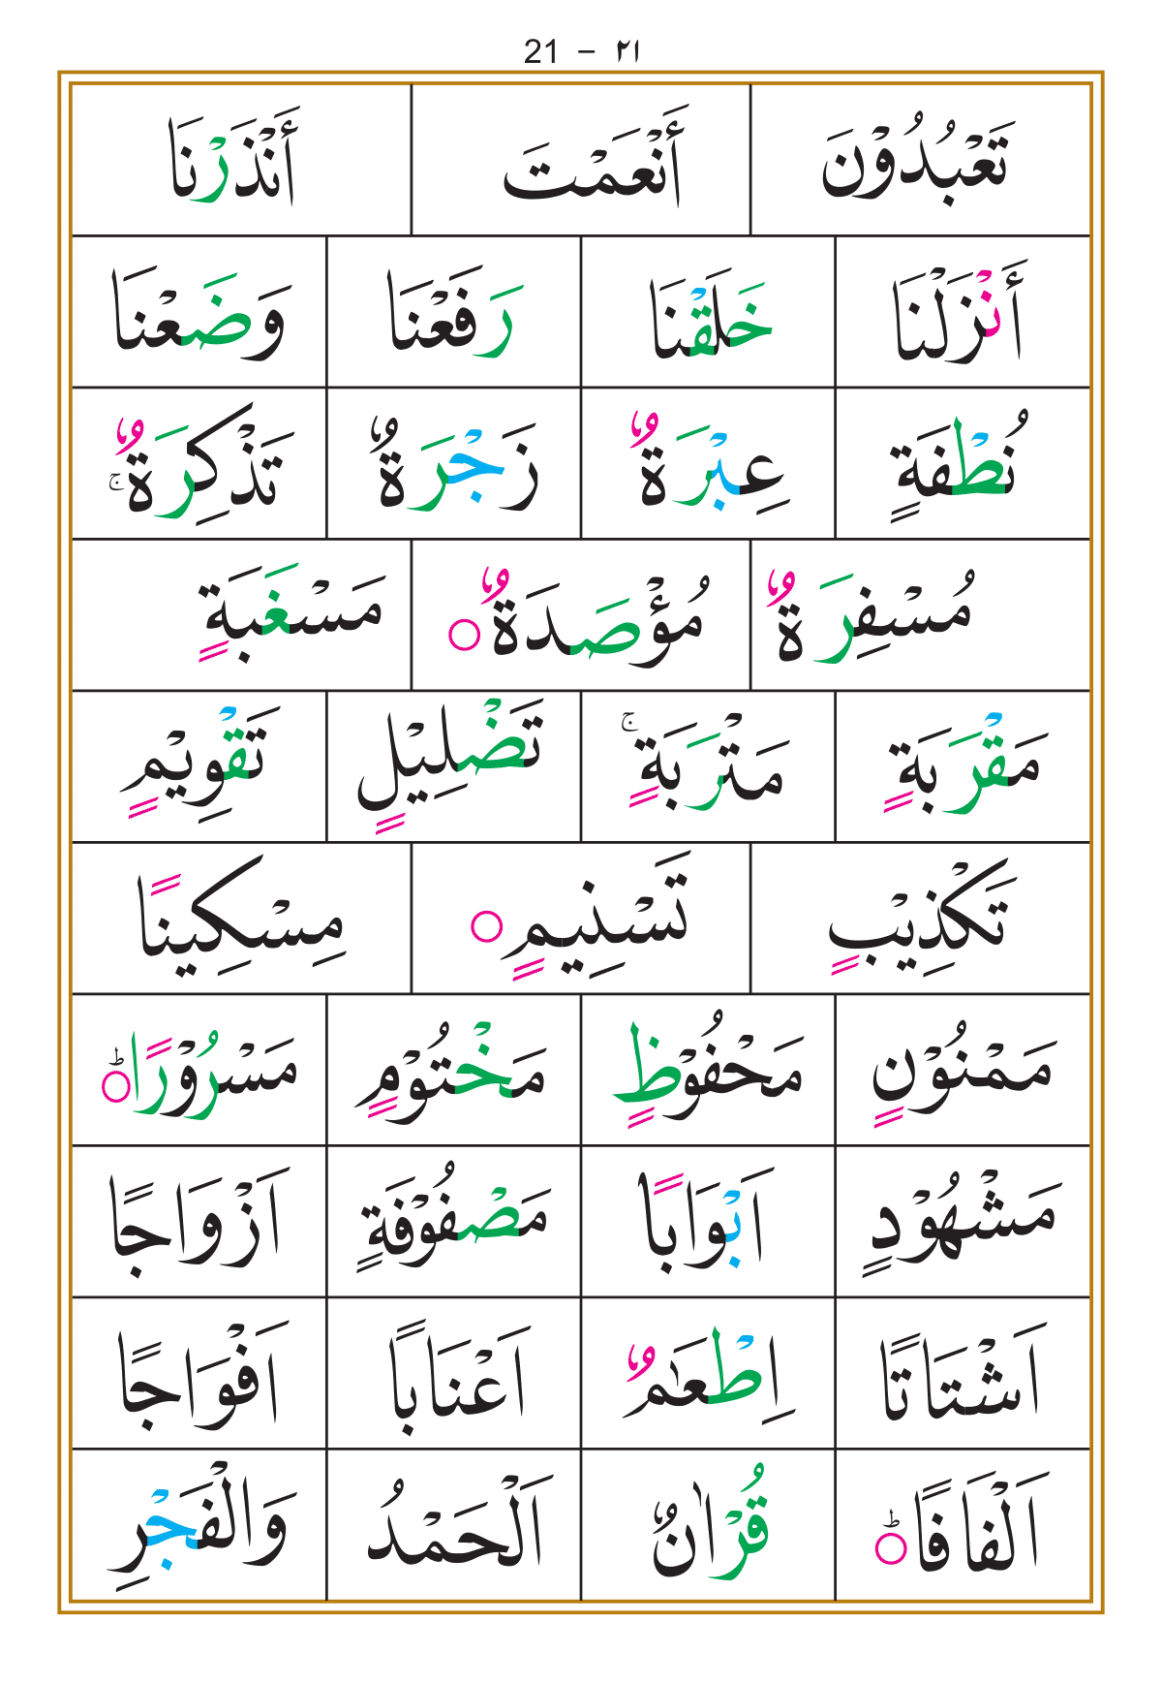 21 – ٢١
تَعْبُدُوْنَ أَنْعَمْتَ أَنْذَرْنَا
أَنْزَلْنَا خَلَقْنَا رَفَعْنَا وَضَعْنَا
نُطْفَةٍ عِبْرَةٌ زَجْرَةٌ تَذْكِرَةٌ ۚ
مُسْفِرَةٌ مُؤْصَدَةٌ ○ مَسْغَبَةٍ
مَقْرَبَةٍ مَتْرَبَةٍ ۚ تَضْلِيْلٍ تَقْوِيْمٍ
تَكْذِيْبٍ تَسْنِيمٍ ○ مِسْكِينًا
مَمْنُوْنٍ مَحْفُوْظٍ مَخْتُوْمٍ مَسْرُوْرًا ؕ○
مَشْهُوْدٍ اَبْوَابًا مَصْفُوْفَةٍ اَزْوَاجًا
اَشْتَاتًا اِطْعٰمٌ اَعْنَابًا اَفْوَاجًا
اَلْفَافًا ؕ○ قُرْاٰنٌ اَلْحَمْدُ وَالْفَجْرِ